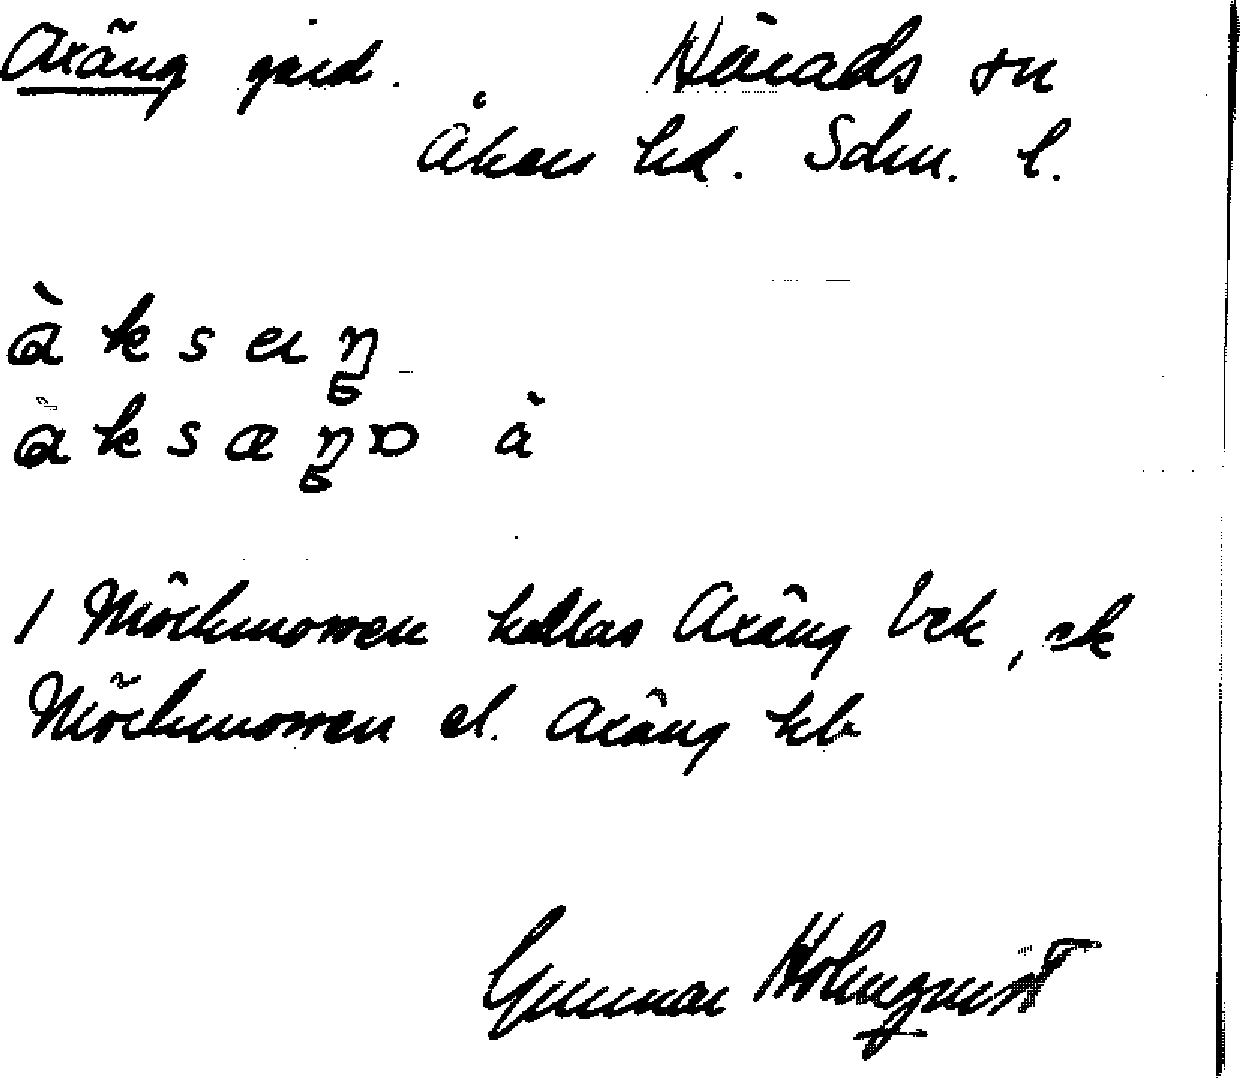 Axäng gård. Härads sn
Åkers hd. Sdm. l.
à k s æ ŋ
a k s æ ŋ ɒ à
1 Mörkmossen kallas Axäng Eck, ek
Mörkmossen el. Axäng kb
Gunnar Holmqvist